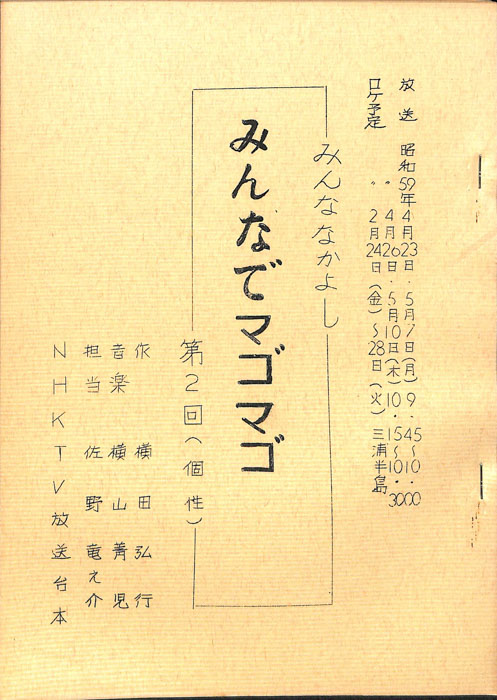 放送 昭和59年4月23日・5月7日(月)9・45~10・00
〃 4月26日・5月10日(木)10・15~10・30
ロケ予定 2月24日(金)~28日(火) 三浦半島
みんななかよし
みんなでマゴマゴ
第2回(個性)
作 横田弘行
音楽 横山菁児
担当 佐野竜之介
NHKTV放送台本